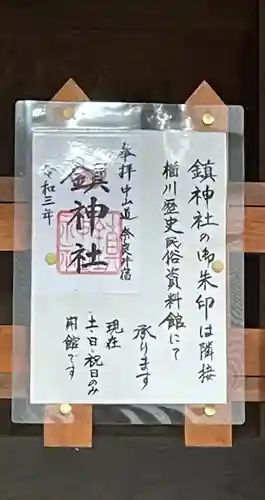 鎮神社の御朱印は隣接
楢川歴史民俗資料館にて
承ります
現在
土・日・祝日のみ
開館です
奉拝 中山道 奈良井宿
鎮神社
令和三年